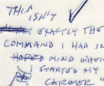 THIS
ISN'T
EXACTLY THE
COMMAND I HAD IN
MIND WHEN
I STARTED MY
CAREER"